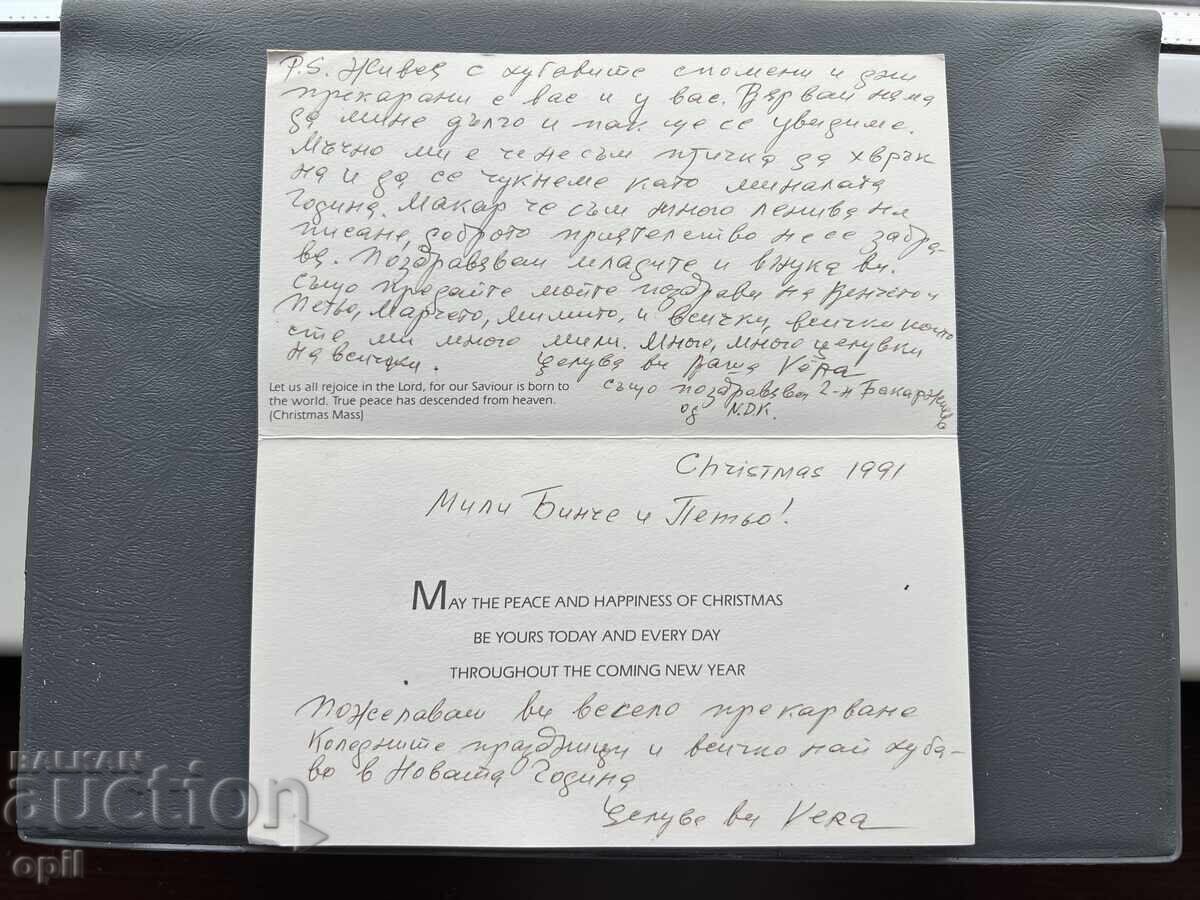 P.S. Живея с хубавите спомени и дни
прекарани с вас и у вас. Вярвай няма
да мине дълго и пак ще се увидиме.
Мъчно ми е че не съм птичка да хврък
на и да се чукнеме като миналата
Година. Макар че съм много ленива на
писане, доброто приятелство не се забра-
вя. Поздравявам младите и внука ви.
също предайте мойте поздрави на Венчето и
Петьо, Марчето, Мимито, и всички, всички които
сте ми много мили. Много, много целувки
на всички. Целува ви Ваша Vера
също поздравявам
од N.D.K.
Let us all rejoice in the Lord, for our Saviour is born to
the world. True peace has descended from heaven.
(Christmas Mass)
Christmas 1991
Мили Бинче и Петьо!
MAY THE PEACE AND HAPPINESS OF CHRISTMAS
BE YOURS TODAY AND EVERY DAY
THROUGHOUT THE COMING NEW YEAR
Пожелавам ви весело прекарване
Коледните празници и всичко най хуба-
во в Новата Година
Целува ви Vera
BALKAN
auction
opil